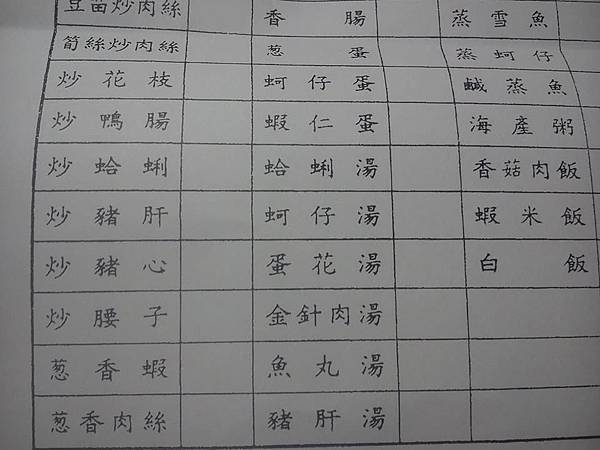 豆苗炒肉絲
筍絲炒肉絲
炒花枝
炒鴨腸
炒蛤蜊
炒豬肝
炒豬心
炒腰子
葱香蝦
葱香肉絲
香腸
葱蛋
蚵仔蛋
蝦仁蛋
蛤蜊湯
蚵仔湯
蛋花湯
金針肉湯
魚丸湯
豬肝湯
蒸雪魚
蒸蚵仔
鹹蒸魚
海產粥
香菇肉飯
蝦米飯
白飯